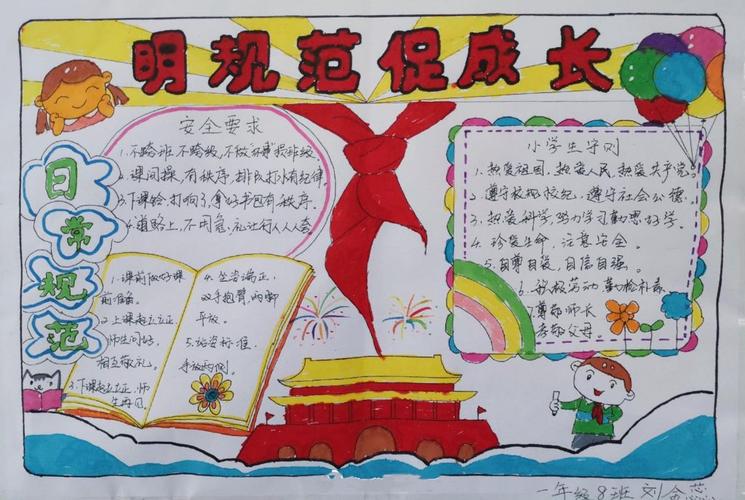 明规范促成长
安全要求
1.不跨班 不跨级,不做有损班级
2.课间操,有秩序,排队打水有纪律
3.下课铃,打响了,拿好书包有秩序.
4.道路上,不困危,礼让行人人人夸
日常规范
1.课前做好课
前准备.
2.上课起立立正
师生问好
相互敬礼.
3.下课起立立正,师
生再见
4.坐姿端正,
双手抱臂,两脚
平放.
5.站姿标准,
手放两侧.
小学生守则
1.热爱祖国,热爱人民,热爱共产党
2.遵守校规校纪,遵守社会公德.
3.热爱科学,努力学习勤思好学.
4.珍爱生命,注意安全.
5.自尊自爱,自信自强.
6.积极劳动,勤俭朴素
7.尊敬师长
孝敬父母.
一年级8班 刘